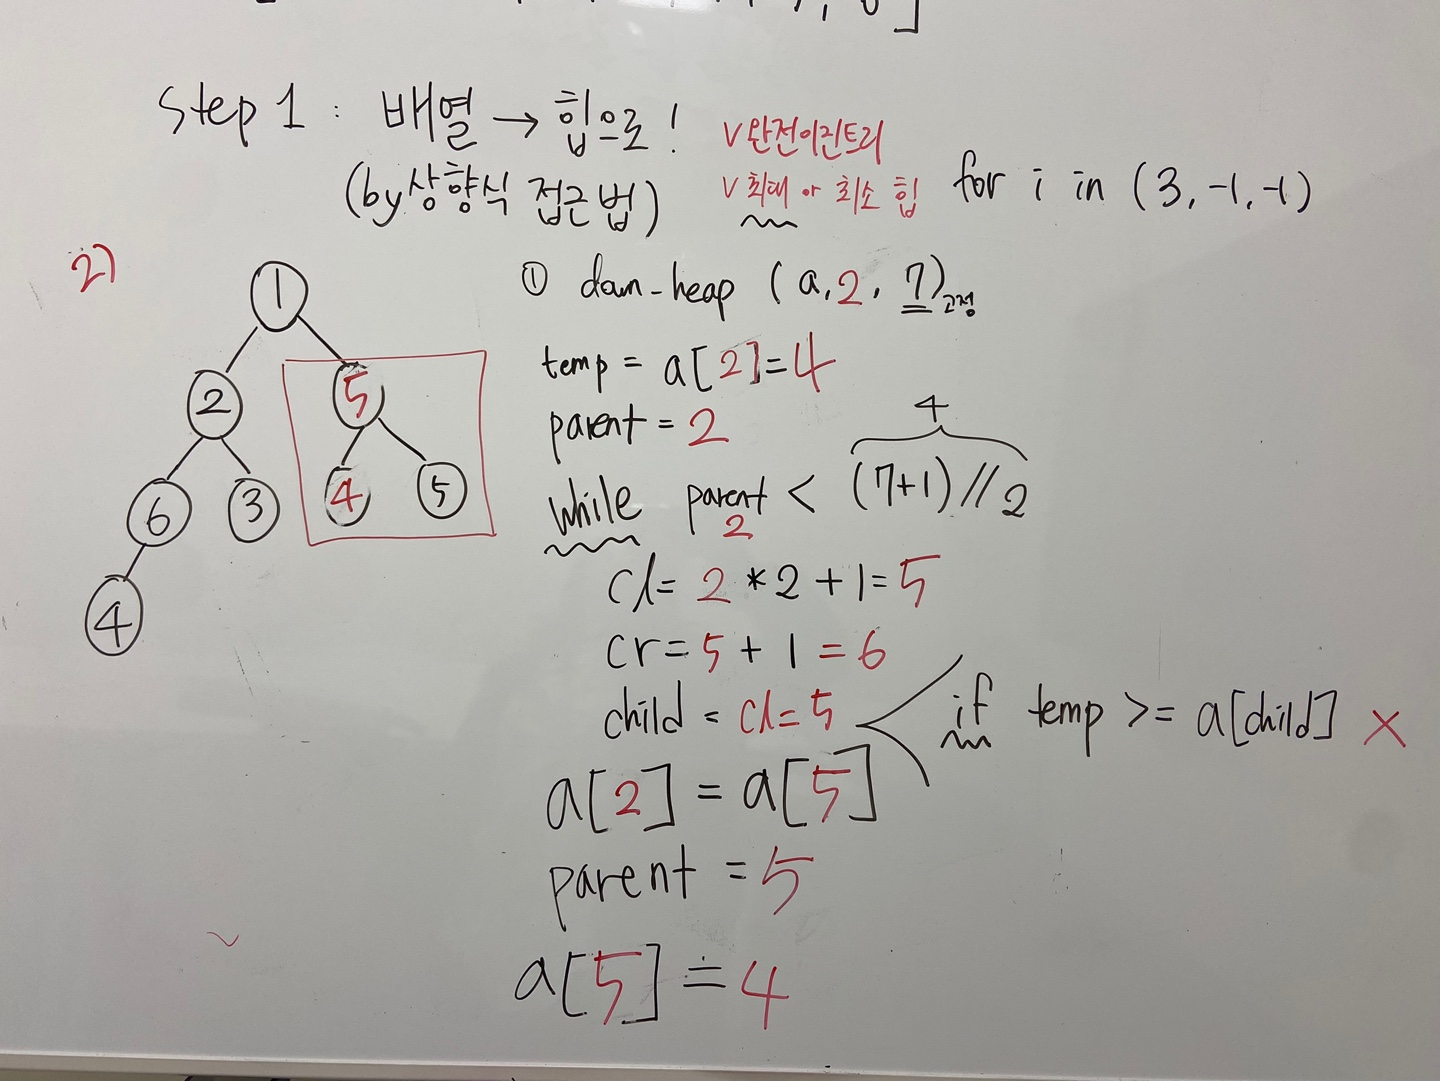 Step 1 : 배열 → 힙으로!
(by상향식 접근법)
v 완전이진트리
v 최대 or 최소 힙
for i in (3, -1, -1)
2)
1
2
5
6
3
4
5
4
① down-heap (a, 2, 7)고정
temp = a[2]=4
parent = 2
4
while parent < (7+1)//2
2
cl= 2*2+1=5
cr= 5+1=6
child = cl=5
if temp >= a[child] X
a[2] = a[5]
parent = 5
a[5] = 4